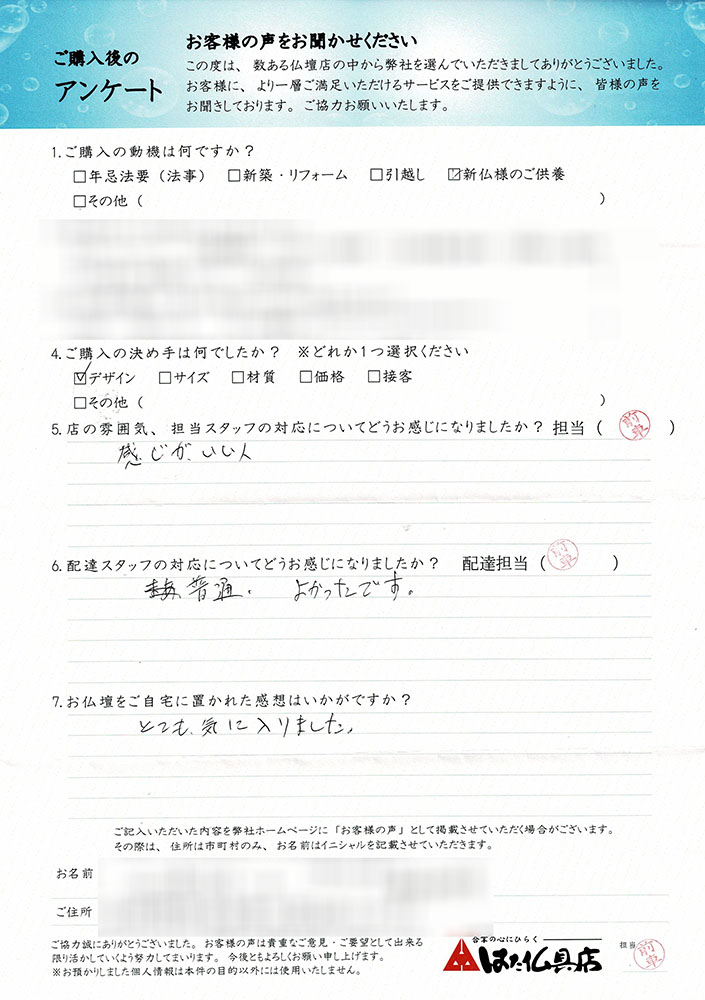 お客様の声をお聞かせください
ご購入後の
アンケート
この度は、数ある仏壇店の中から弊社を選んでいただきましてありがとうございました。
お客様に、より一層ご満足いただけるサービスをご提供できますように、皆様の声を
お聞きしております。ご協力お願いいたします。
1.ご購入の動機は何ですか？
□年忌法要（法事） □新築・リフォーム □引越し ☑新仏様のご供養
□その他（ ）
4.ご購入の決め手は何でしたか？ ※どれか1つ選択ください
☑デザイン □サイズ □材質 □価格 □接客
□その他（ ）
5.店の雰囲気、担当スタッフの対応についてどうお感じになりましたか？ 担当（ ）
感じがいい人
6.配達スタッフの対応についてどうお感じになりましたか？ 配達担当（ ）
普通. よかったです。
7.お仏壇をご自宅に置かれた感想はいかがですか？
とても気に入りました。
ご記入いただいた内容を弊社ホームページに「お客様の声」として掲載させていただく場合がございます。
その際は、住所は市町村のみ、お名前はイニシャルを記載させていただきます。
お名前
ご住所
ご協力誠にありがとうございました。お客様の声は貴重なご意見・ご要望として出来る
限り活かしていくよう努力してまいります。今後ともよろしくお願い申し上げます。
※お預かりしました個人情報は本件の目的以外には使用いたしません。
合掌の心にひらく
はた仏具店
担当